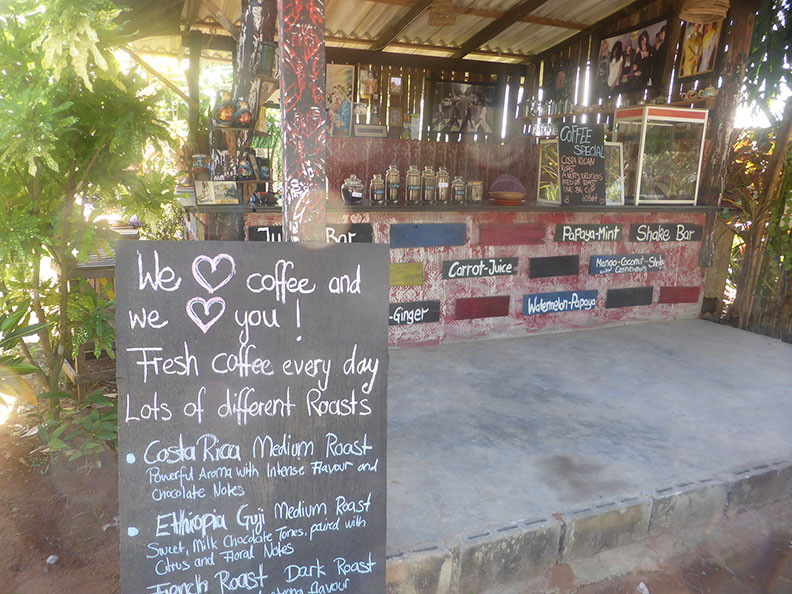 We ♡ coffee and
we ♡ you !
Fresh coffee every day
Lots of different Roasts
• Costa Rica Medium Roast
Powerful Aroma with Intense Flavour and
Chocolate Notes
• Ethiopia Guji Medium Roast
Sweet, Milk Chocolate Tones, paired with
Citrus and Floral Notes
French Roast Dark Roast
flavour
COFFEE
SPECIAL
COSTA RICAN
ROAST
A NUTTY DELICIOUS
MEDIUM ROAST
ONE BIG CUP
Bar
Papaya-Mint
Shake Bar
Carrot-Juice
Mango-Coconut-Shake
with Cashewnuts
-Ginger
Watermelon-Papaya